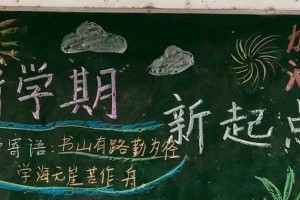 新学期
新起点
寄语:书山有路勤为径
学海无崖苦作舟